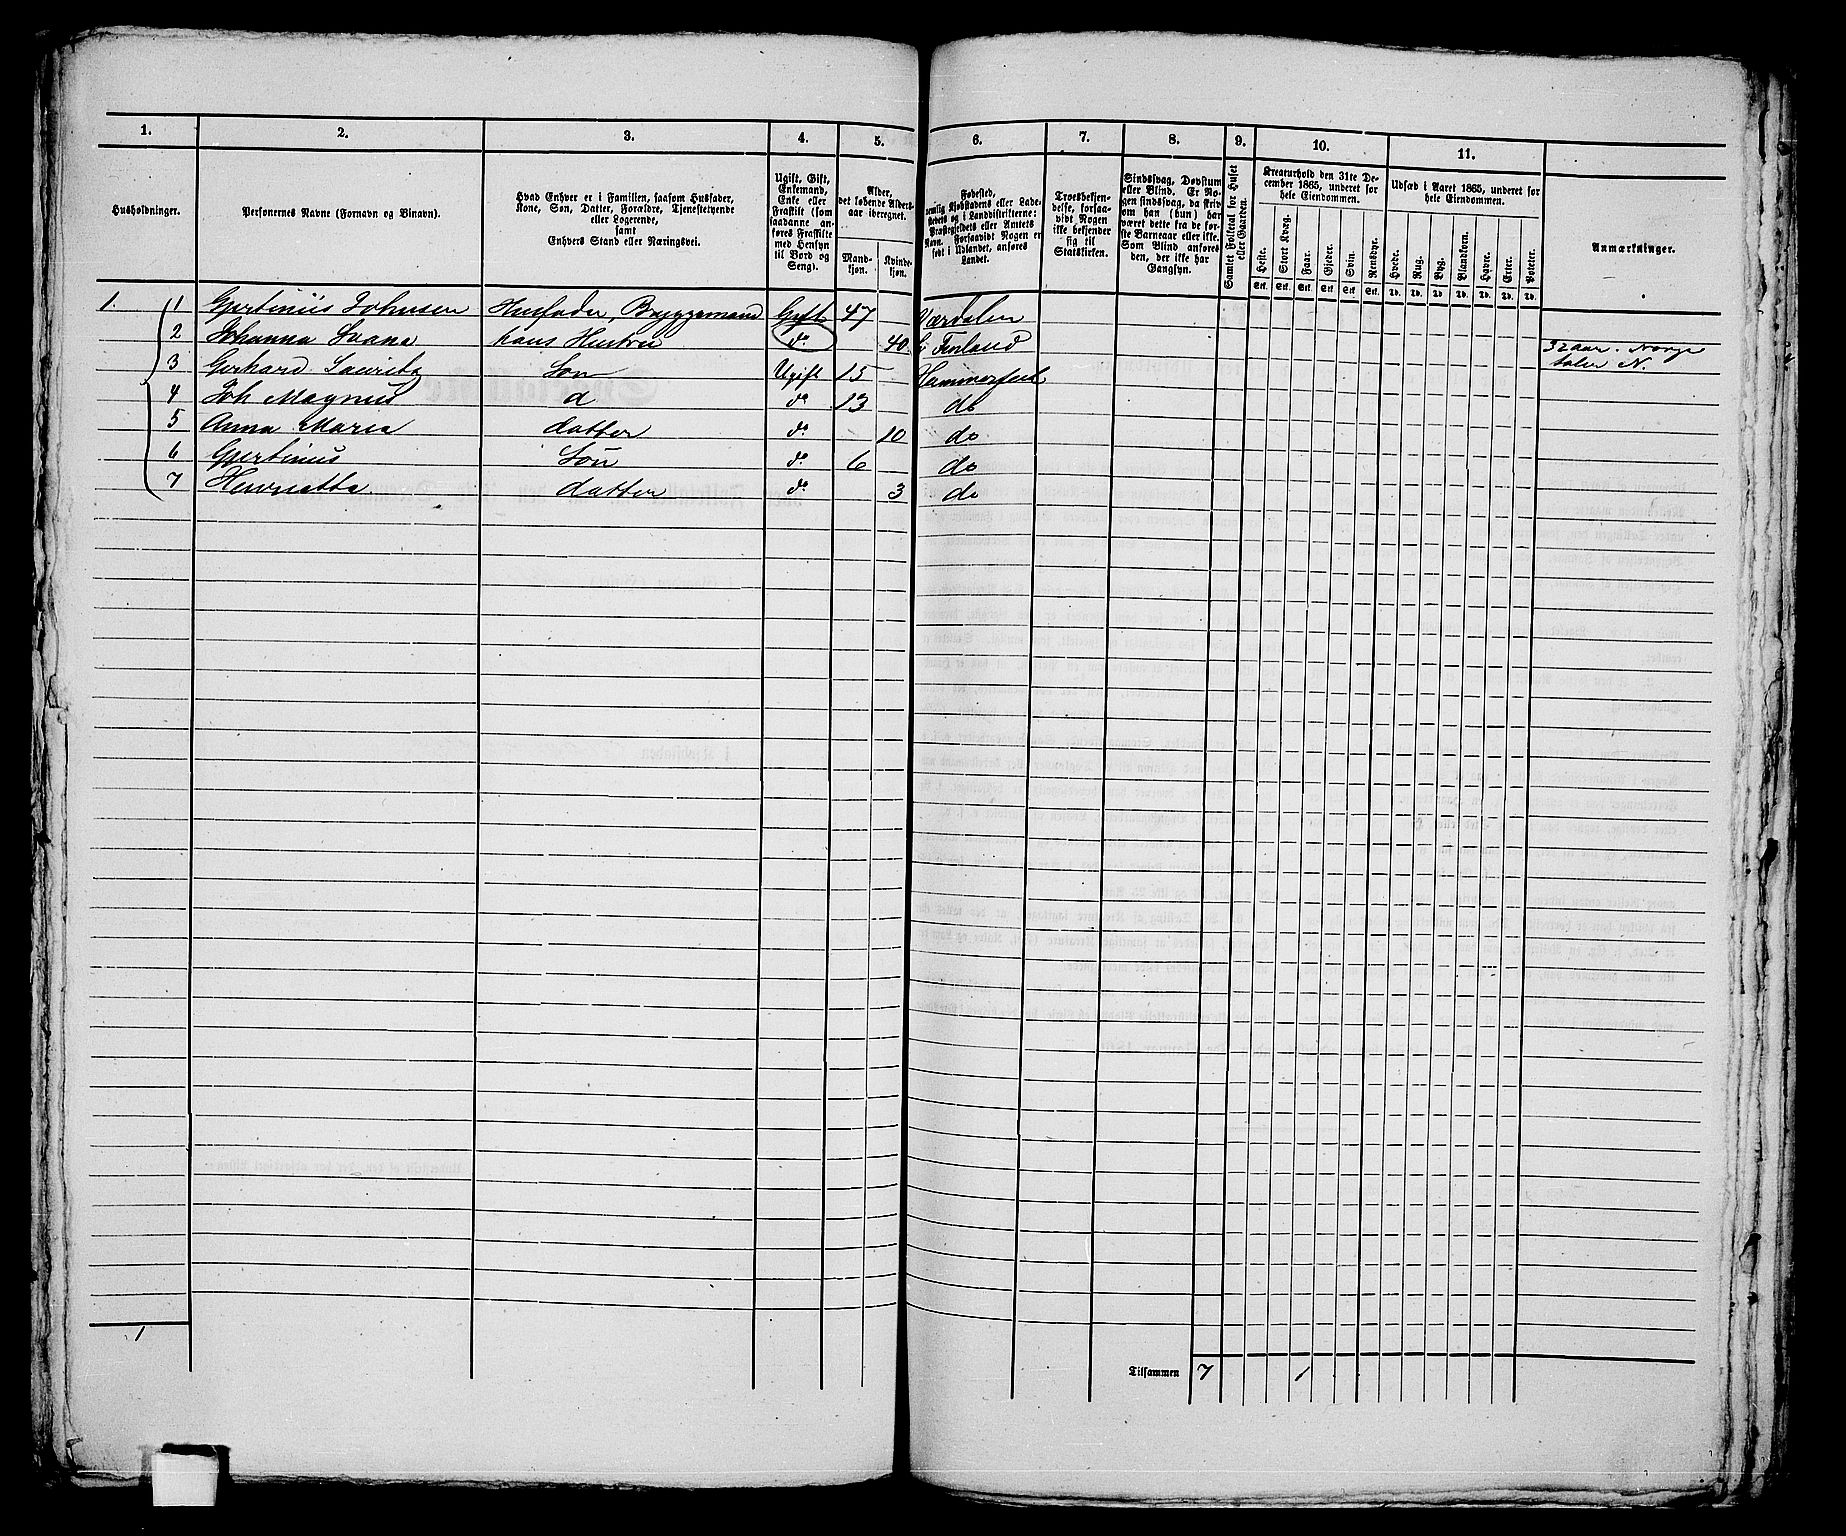 1. 2. 3. 4. 5. 6. 7. 8. 9. 10. 11.
Husholdninger.
Personernes Navne (Fornavn og Binavn).
Hvad Enhver er i Familien, saasom Husfader,
Kone, Søn, Datter, Forældre, Tjenestetyende
eller Logerende,
samt
Enhvers Stand eller Næringsvei.
Ugift, Gift,
Enkemand,
Enke eller
Fraskilt (som
saadanne an-
føres Fraskilte
med Hensyn
til Bord og
Seng).
Alder,
det løbende Alders-
aar iberegnet.
Mand-
kjøn.
Kvinde-
kjøn.
Fødested,
nemlig Kjøbstadens eller Lade-
stedets og i Landdistrikterne:
Præstegjeldets eller Amtets
Navn. Forsaavidt Nogen er
født i Udlandet, anføres
Landet.
Troesbekjen-
delse, forsaa-
vidt Nogen
ikke bekjender
sig til
Statskirken.
Sindssvag, Døvstum
eller Blind. Er No-
gen sindssvag, da skriv
om han (hun) har
været dette fra de før-
ste Barneaar eller ikke.
Som Blind anføres
den, der ikke har
Gangsyn.
Samlet Folketal for Huset
eller Gaarden.
Kreaturhold den 31te De-
cember 1865, underet for
hele Eiendommen.
Heste. Stort Kvæg. Faar. Gjeder. Svin. Rensdyr.
Stk. Stk. Stk. Stk. Stk. Stk.
Udsæd i Aaret 1865, underet for
hele Eiendommen.
Hvede. Rug. Byg. Blandkorn. Havre. Erter. Poteter.
Td. Td. Td. Td. Td. Td. Td.
Anmærkninger.
1. 1 Gjertinius Johnsen Husfader, Bryggemand Gift 47 Værdalen
2 Johanna hans Hustru do 40 i Finland 32 aar i Norge
taler N.
3 Gerhard Lauritz Søn Ugift 15 Hammerfest
4 Joh Magnus d do 13 do
5 Anna Maria datter do 10 do
6 Gjertinius Søn do 6 do
7 Henriette datter do 3 do
1
Tilsammen 7 1